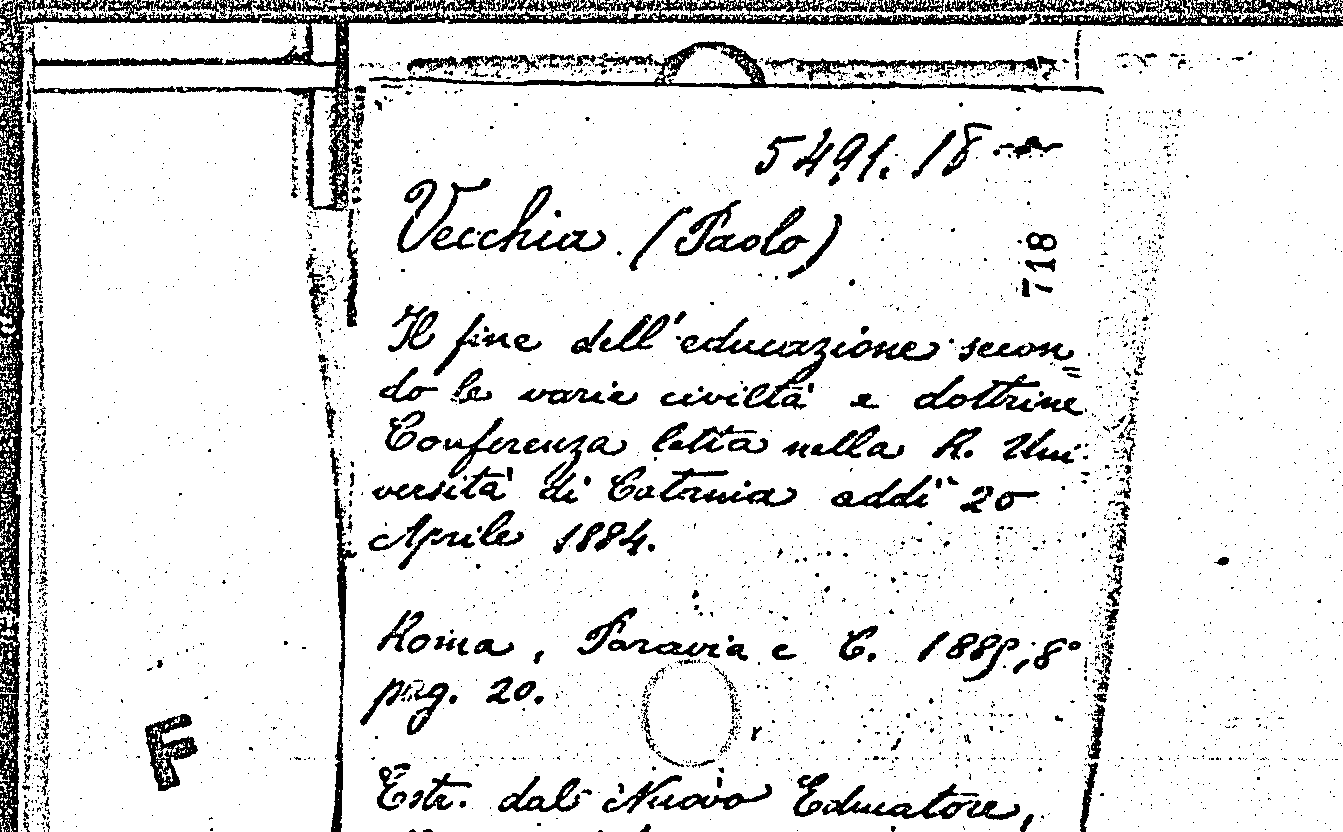 5491. 18
Vecchia (Paolo)
718
Il fine dell'educazione secon=
do le varie civiltà e dottrine
Conferenza letta nella R. Uni-
versità di Catania addì 20
Aprile 1884.
Roma, Paravia e C. 1885, 8°
pag. 20.
F
Estr. dal Nuovo Educatore,